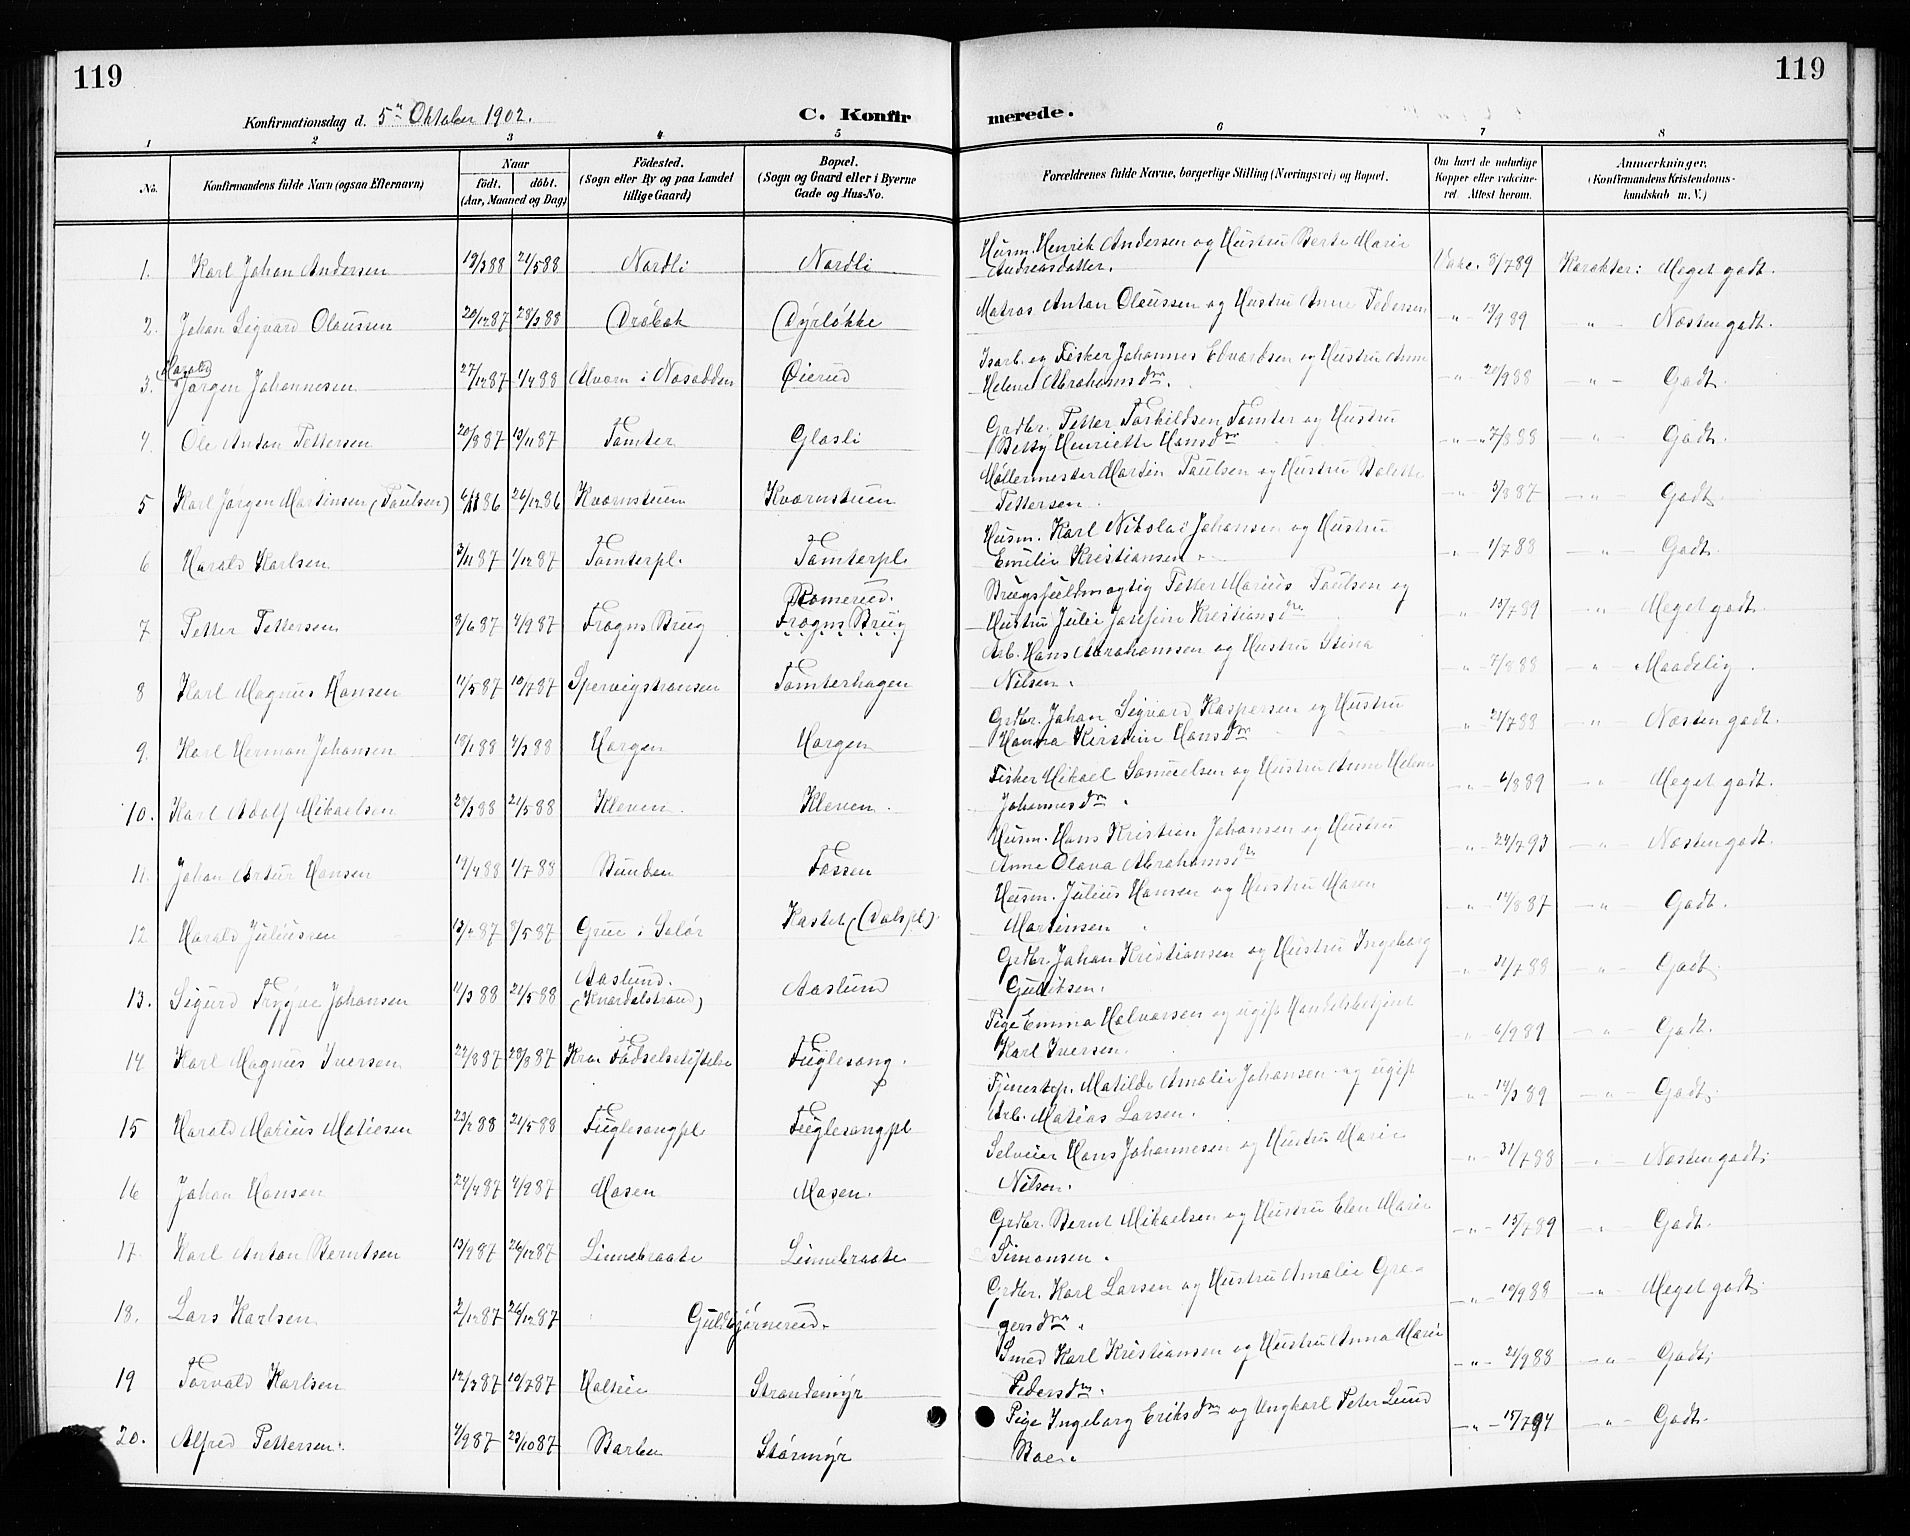 119
119
Konfirmationsdag d. 5te Oktober 1902.
C. Konfirmerede.
1 2 3 4 5 6 7 8
No.
Konfirmandens fulde Navn (ogsaa Efternavn)
Naar
födt. döbt.
(Aar, Maaned og Dag)
Födested.
(Sogn eller By og paa Landet
tillige Gaard)
Bopæl.
(Sogn og Gaard eller i Byerne
Gade og Hus-No.
Forældrenes fulde Navne, borgerlige Stilling (Næringsvei) og Bopæl.
Om havt de naturlige
Kopper eller vakcine-
ret. Attest herom.
Anmærkninger,
(Konfirmandens Kristendoms-
kundskab m. V.)
Husm. Henrik Andersen og Hustru Berte Marie
1. Karl Johan Andersen 19/3 88 21/5 88 Nordli Nordli Andreasdatter. Vakc. 8/7 89 Karakter: Meget godt.
Matros Anton Olaussen og Hustru Anne Pedersen
2. Johan Sigvard Olaussen 20/12 87 28/3 88 Drøbak Dyrløkke " 13/9 89 " Næsten godt.
Isarb. og Fisker Johannes Edvardsen og Hustru Anne
3. Harald Jørgen Johannesen 27/12 87 1/4 88 Alværn i Næsodden Øierud Helene Abrahamsdtr. " 20/9 88 " Godt.
Grdbr. Petter Torkildsen Tomter og Hustru
4 Ole Anton Pettersen 20/8 87 13/11 87 Tomter Glasli Betsy Henriette Hansdtr " 7/8 88 " Godt.
Møllermester Martin Paulsen og Hustru Bolette
5 Karl Jørgen Martinsen (Paulsen) 6/11 86 26/12 86 Kværnstuen Kværnstuen Pettersen. " 5/8 87 " Godt.
Husm. Karl Nikolai Johansen og Hustru
6 Harald Karlsen 3/11 87 1/12 87 Tomterpl. Tomterpl. Emilie Kristiansen. " 1/7 88 " Godt.
Romerud. Brugsfuldmægtig Petter Marius Paulsen og
7 Petter Pettersen 8/6 87 4/9 87 Frogns Brug Frogns Brug Hustru Julie Josefine Kristiansdtr " 13/7 89 " Meget godt.
Arb. Hans Abrahamsen og Hustru Stina
8 Karl Magnus Hansen 11/5 87 10/7 87 Spervigstransen Tomterhagen Nilsen. " 7/8 88 " Maadelig.
Grdbr. Johan Sigvard Kaspersen og Hustru
9. Karl Herman Johansen 18/1 88 4/3 88 Horgen Horgen Hanna Kirstine Hansdtr " 24/7 88 " Næsten godt.
Fisker Mikael Samuelsen og Hustru Anne Helene
10. Karl Adolf Mikaelsen 28/3 88 21/5 88 Kleven. Kleven. Johannesdtr. " 6/8 89 " Meget godt.
Husm. Hans Kristian Johansen og Hustru
11. Johan Artur Hansen 19/4 88 1/7 88 Bunden Fossen Anne Olava Abrahamsdtr " 24/7 93 " Næsten godt.
Husm. Julius Hansen og Hustru Maren
12 Harald Juliussen 13/2 87 8/5 87 Grue i Solør Kastet (Dalspl). Martinsen " 14/8 87 " Godt.
Grdbr. Johan Kristiansen og Hustru Ingeborg
13. Sigurd Trygve Johansen 11/3 88 21/5 88 Aaslund. (Knardalstrand) Aaslund Gulliksen. " 31/7 88 " Godt.
Pige Emma Halvorsen og ugift Handelsbetjent
14 Karl Magnus Iversen 22/8 87 28/8 87 Kra Fødselsstiftelse Fuglesang. Karl Iversen. " 6/9 89 " Godt.
Tjenestep. Matilde Amalie Johansen og ugift
15 Harald Marius Matiesen 23/2 88 21/5 88 Fuglesangpl Fuglesangpl Arb. Matias Larsen. " 14/3 89 " Godt.
Selveier Hans Johannesen og Hustru Marie
16 Johan Hansen 24/4 87 4/9 87 Mosen Mosen. Nilsen. " 31/7 88 " Næsten godt.
Grdbr. Bernt Mikaelsen og Hustru Elen Marie
17. Karl Anton Berntsen 13/9 87 26/12 87 Linnebraate Linnebraate Simonsen. " 15/7 89 " Godt.
Grdbr. Karl Larsen og Hustru Amalie Gre-
18. Lars Karlsen 2/12 87 26/12 87 Guldbjørnerud. gersdtr. " 10/9 88 " Meget godt.
Smed Karl Kristiansen og Hustru Anna Marie
19 Torvald Karlsen 12/3 87 10/7 87 Holteie Strandemyr Pedersdtr. " 21/9 88 " Godt.
Pige Ingeborg Eriksdtr og Ungkarl Peter Lund
20. Alfred Pettersen. 4/9 87 23/10 87 Barben Stormyr Boe. " 15/7 94 " Godt.